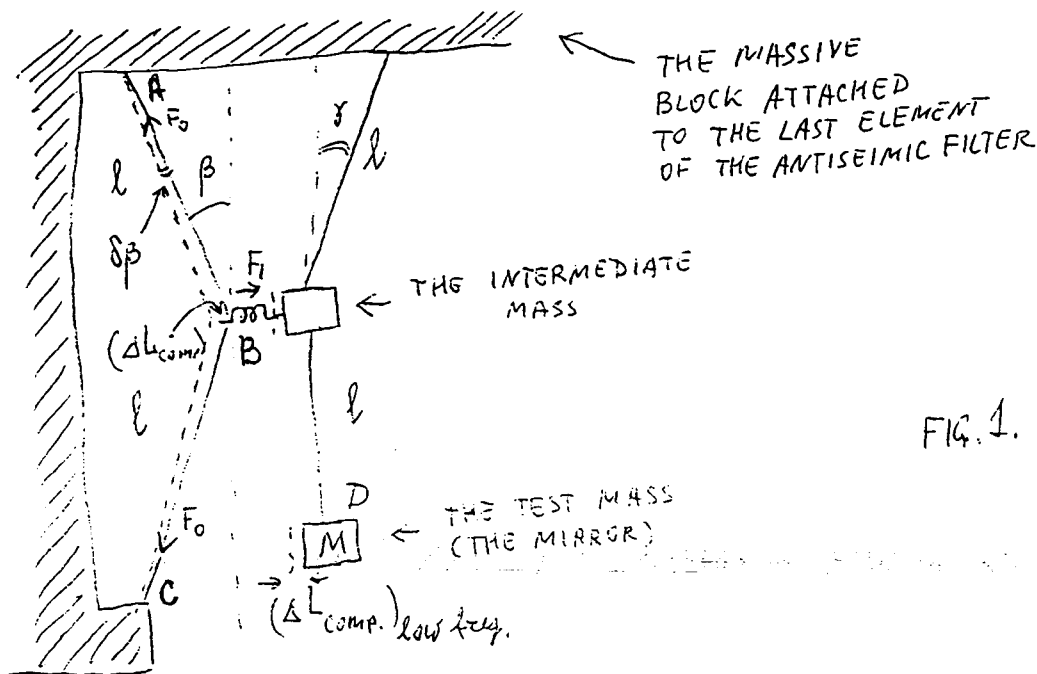 THE MASSIVE
BLOCK ATTACHED
TO THE LAST ELEMENT
OF THE ANTISEIMIC FILTER
A
F₀
γ
l
l
β
δβ
F₁
THE INTERMEDIATE
MASS
(ΔL comp)
B
l
l
FIG. 1.
D
THE TEST MASS
(THE MIRROR)
F₀
M
C
(ΔL comp.) low freq.